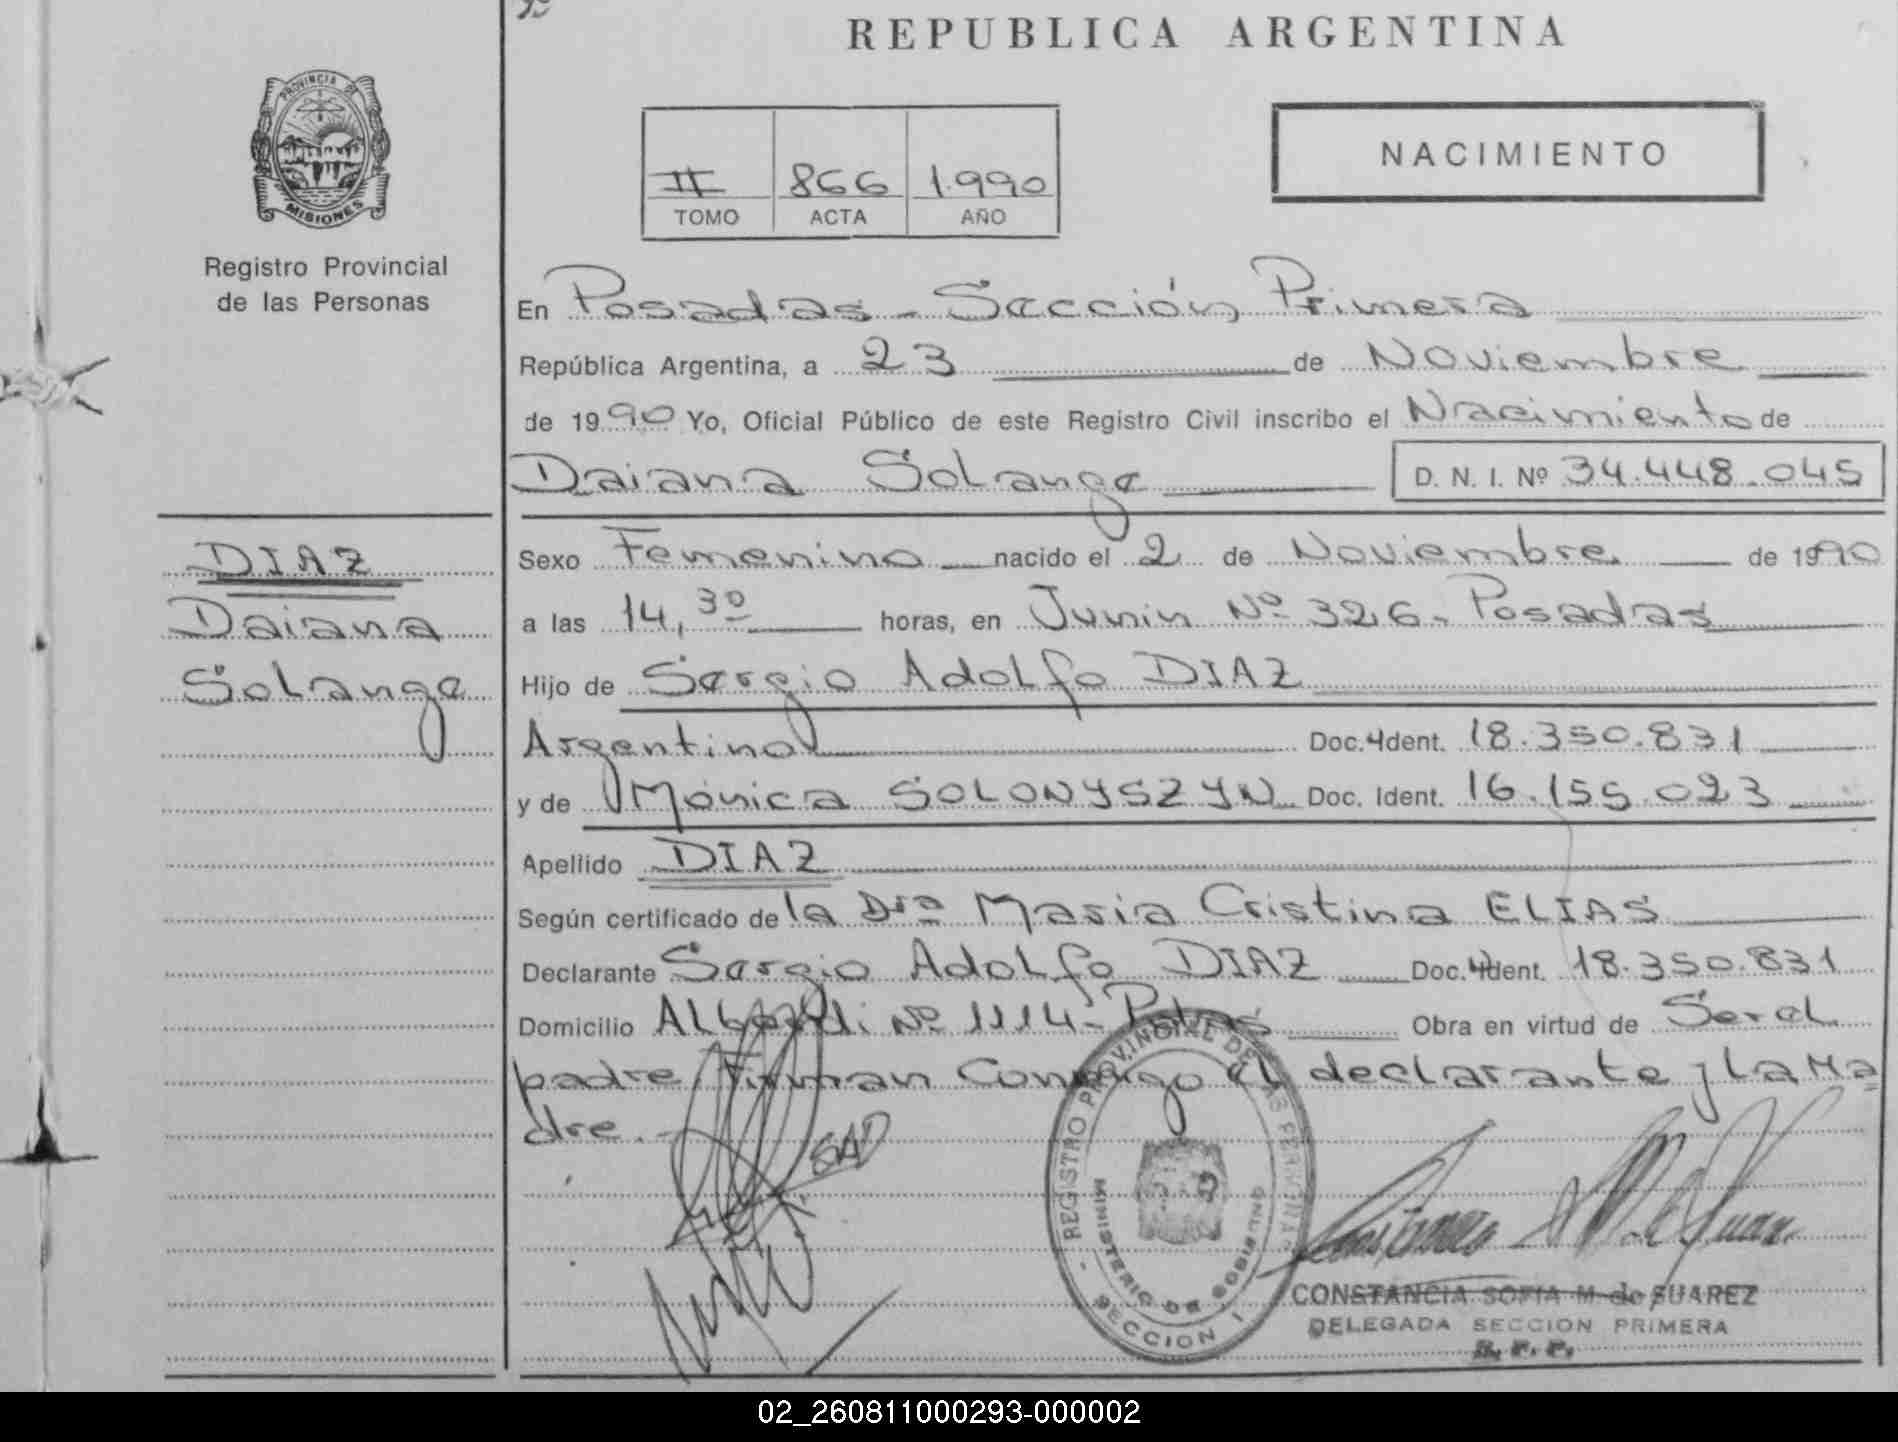 REPUBLICA ARGENTINA
PROVINCIA DE
MISIONES
Registro Provincial
de las Personas
II 866 1.990
TOMO ACTA AÑO
NACIMIENTO
En Posadas - Sección Primera
República Argentina, a 23 de Noviembre
de 1990 Yo, Oficial Público de este Registro Civil inscribo el Nacimiento de
Daiana Solange D. N. I. Nº 34.448.045
DIAZ
Daiana
Solange
Sexo Femenino nacido el 2 de Noviembre de 1990
a las 14,30 horas, en Junin Nº 326- Posadas
Hijo de Sergio Adolfo DIAZ
Argentino Doc. Ident. 18.350.831
y de Mónica SOLONYSZYN Doc. Ident. 16.155.023
Apellido DIAZ
Según certificado de la Dra Maria Cristina ELIAS
Declarante Sergio Adolfo DIAZ Doc. Ident. 18.350.831
Domicilio Alberdi Nº 1114- Pdas Obra en virtud de Ser el
padre, Firman Conmigo el declarante y la Ma
dre.-
SAD
REGISTRO PROVINCIAL DE LAS PERSONAS
MINISTERIO DE GOBIERNO
SECCION 1
CONSTANCIA SOFIA M. de SUAREZ
DELEGADA SECCION PRIMERA
R. P. P.
02_260811000293-000002